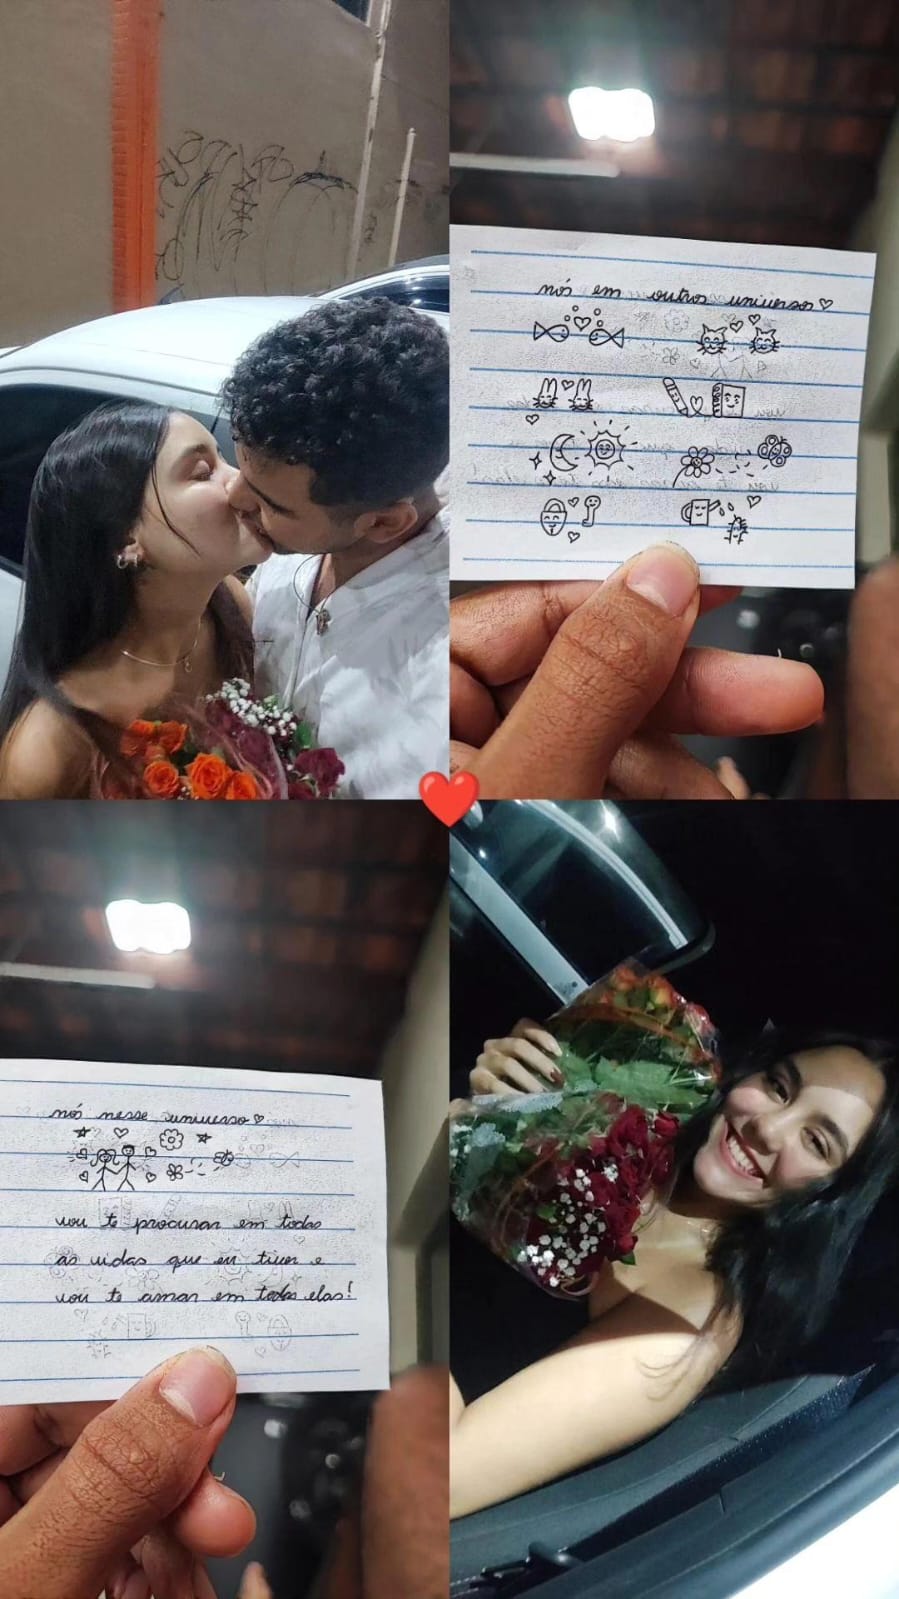 nós em outros universos♡
nós nesse universo♡
vou te procurar em todas
as vidas que eu tiver e
vou te amar em todas elas!